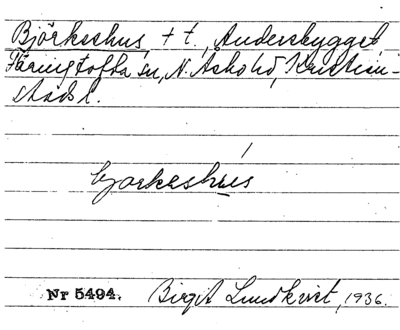 Björkeshus, + t., Andersbygget,
Färingtofta sn, N. Åsbo hd, Kristian-
stads l.
bjorkeshús
Nr 5494. Birgit Lundkvist, 1936.